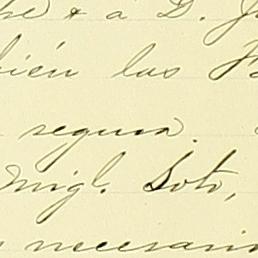 & a D.
bién las
segura.
Migl. Soto,
necesari